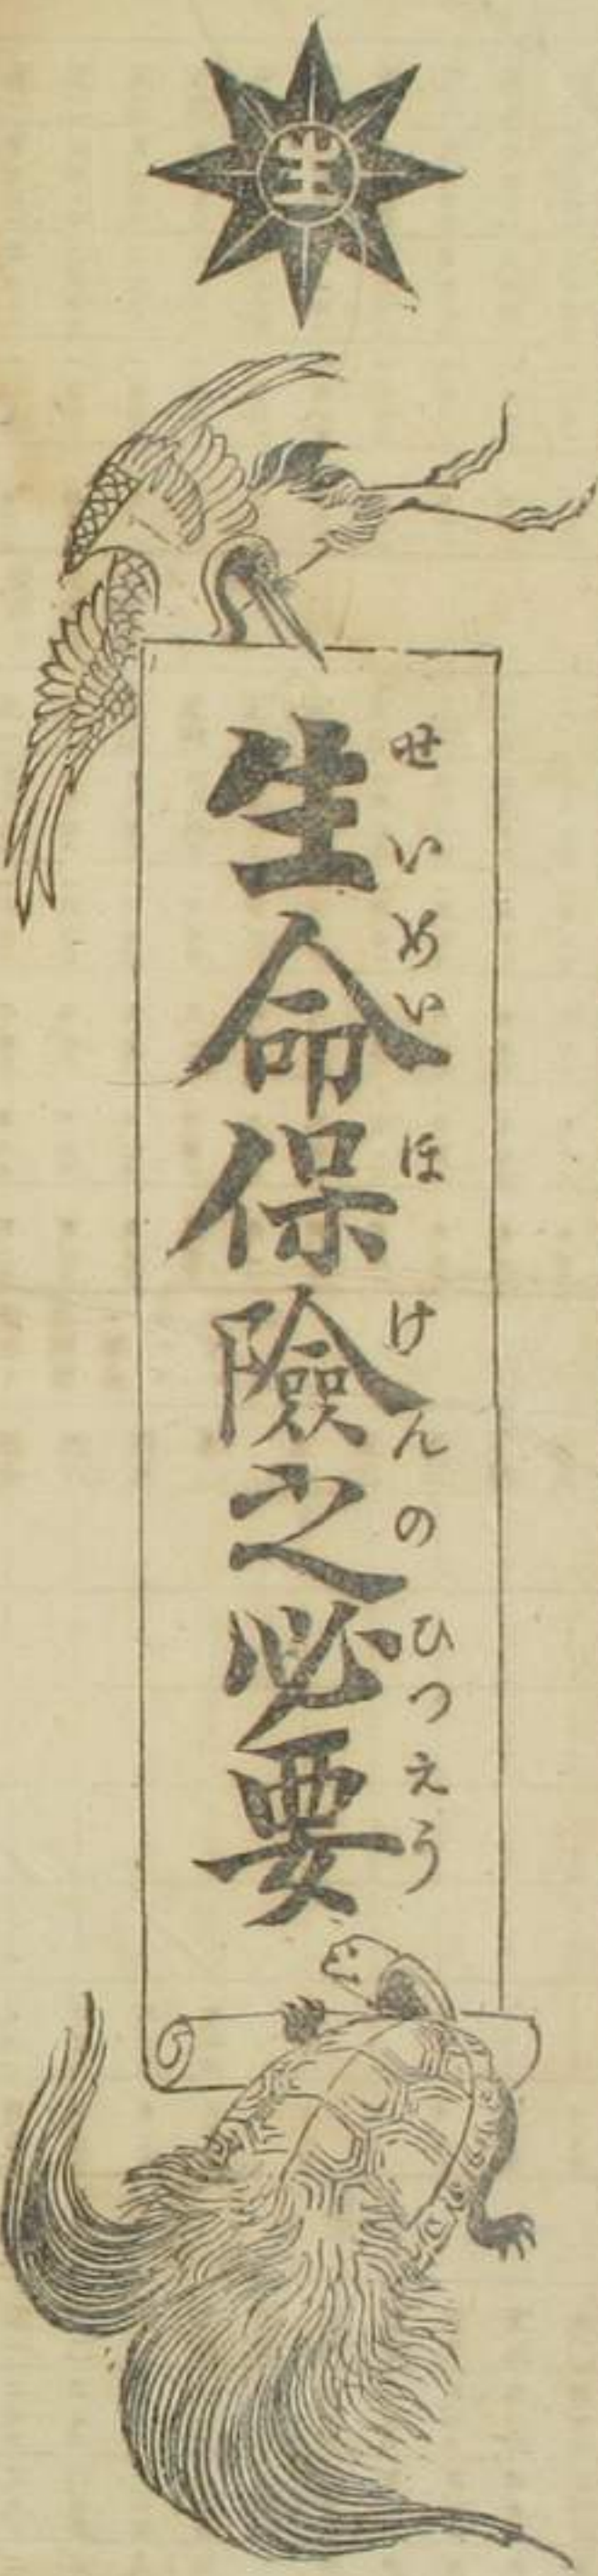 生
生命保險之必要
せいめいほけんのひつえう